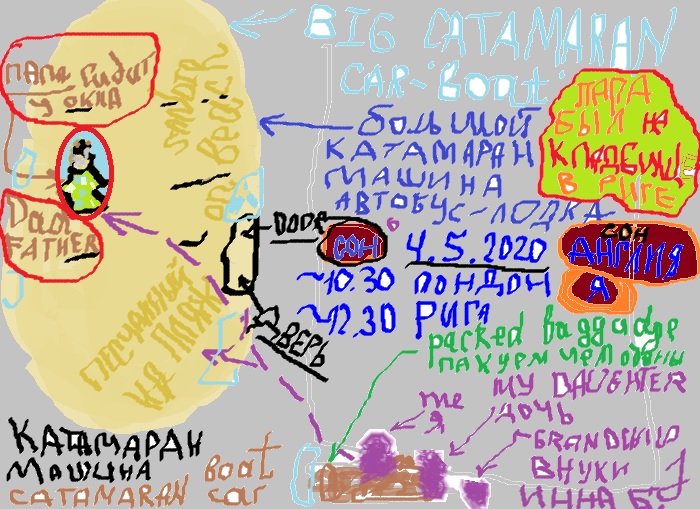 BIG CATAMARAN
CAR-boat
ПАПА СИДИТ
У ОКНА
БОЛЬШОЙ
КАТАМАРАН
МАШИНА
АВТОБУС-ЛОДКА
ПАПА
БЫЛ НА
КЛАДБИЩ
В РИГЕ
on Beach
Dad
FATHER
DOOR
СОН
4.5.2020
~10.30 ЛОНДОН
~12.30 РИГА
СОН
АНГЛИЯ
Я
НА ПЛЯЖ
ДВЕРЬ
packed baggadge
ПАКУЕМ ЧЕМОДАНЫ
me
Я
MY DAUGHTER
ДОЧЬ
GRANDCHILD
ВНУКИ
ИННА Б
КАТАМАРАН
МАШИНА
CATAMARAN boat
car